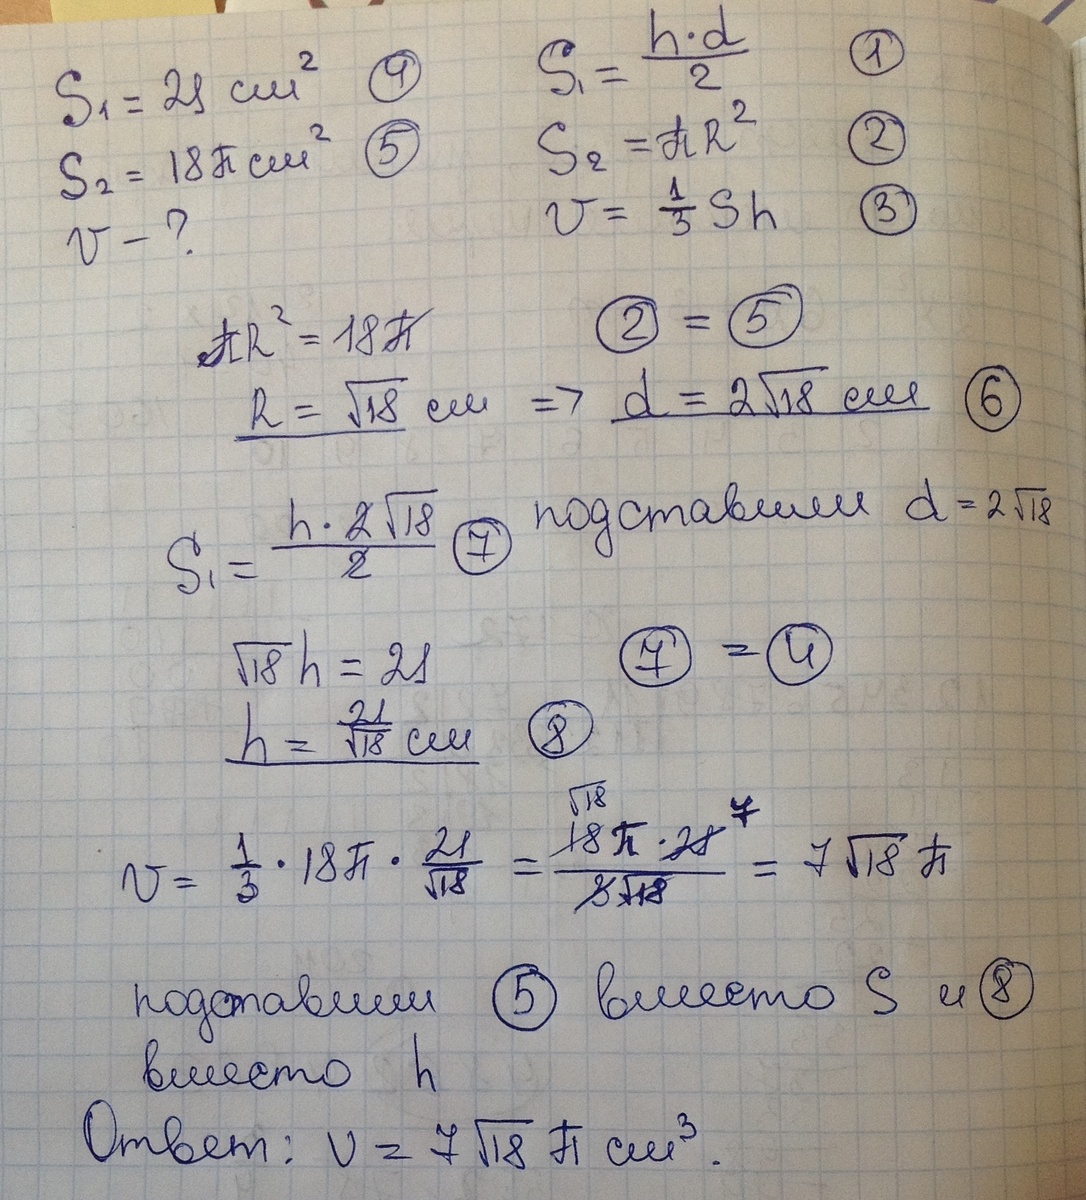 S₁ = 21 см² ④ S₁ = h·d/2 ①
S₂ = 18π см² ⑤ S₂ = πR² ②
V – ? V = 1/3 Sh ③
πR² = 18π ② = ⑤
R = √18 см => d = 2√18 см ⑥
S₁ = h·2√18/2 ⑦ подставили d = 2√18
√18 h = 21 ⑦ = ④
h = 21/√18 см ⑧
V = 1/3 · 18π · 21/√18 = 18π·21/3√18 = 7√18 π
√18 7
подставили ⑤ вместо S и ⑧
вместо h
Ответ: V = 7√18 π см³.